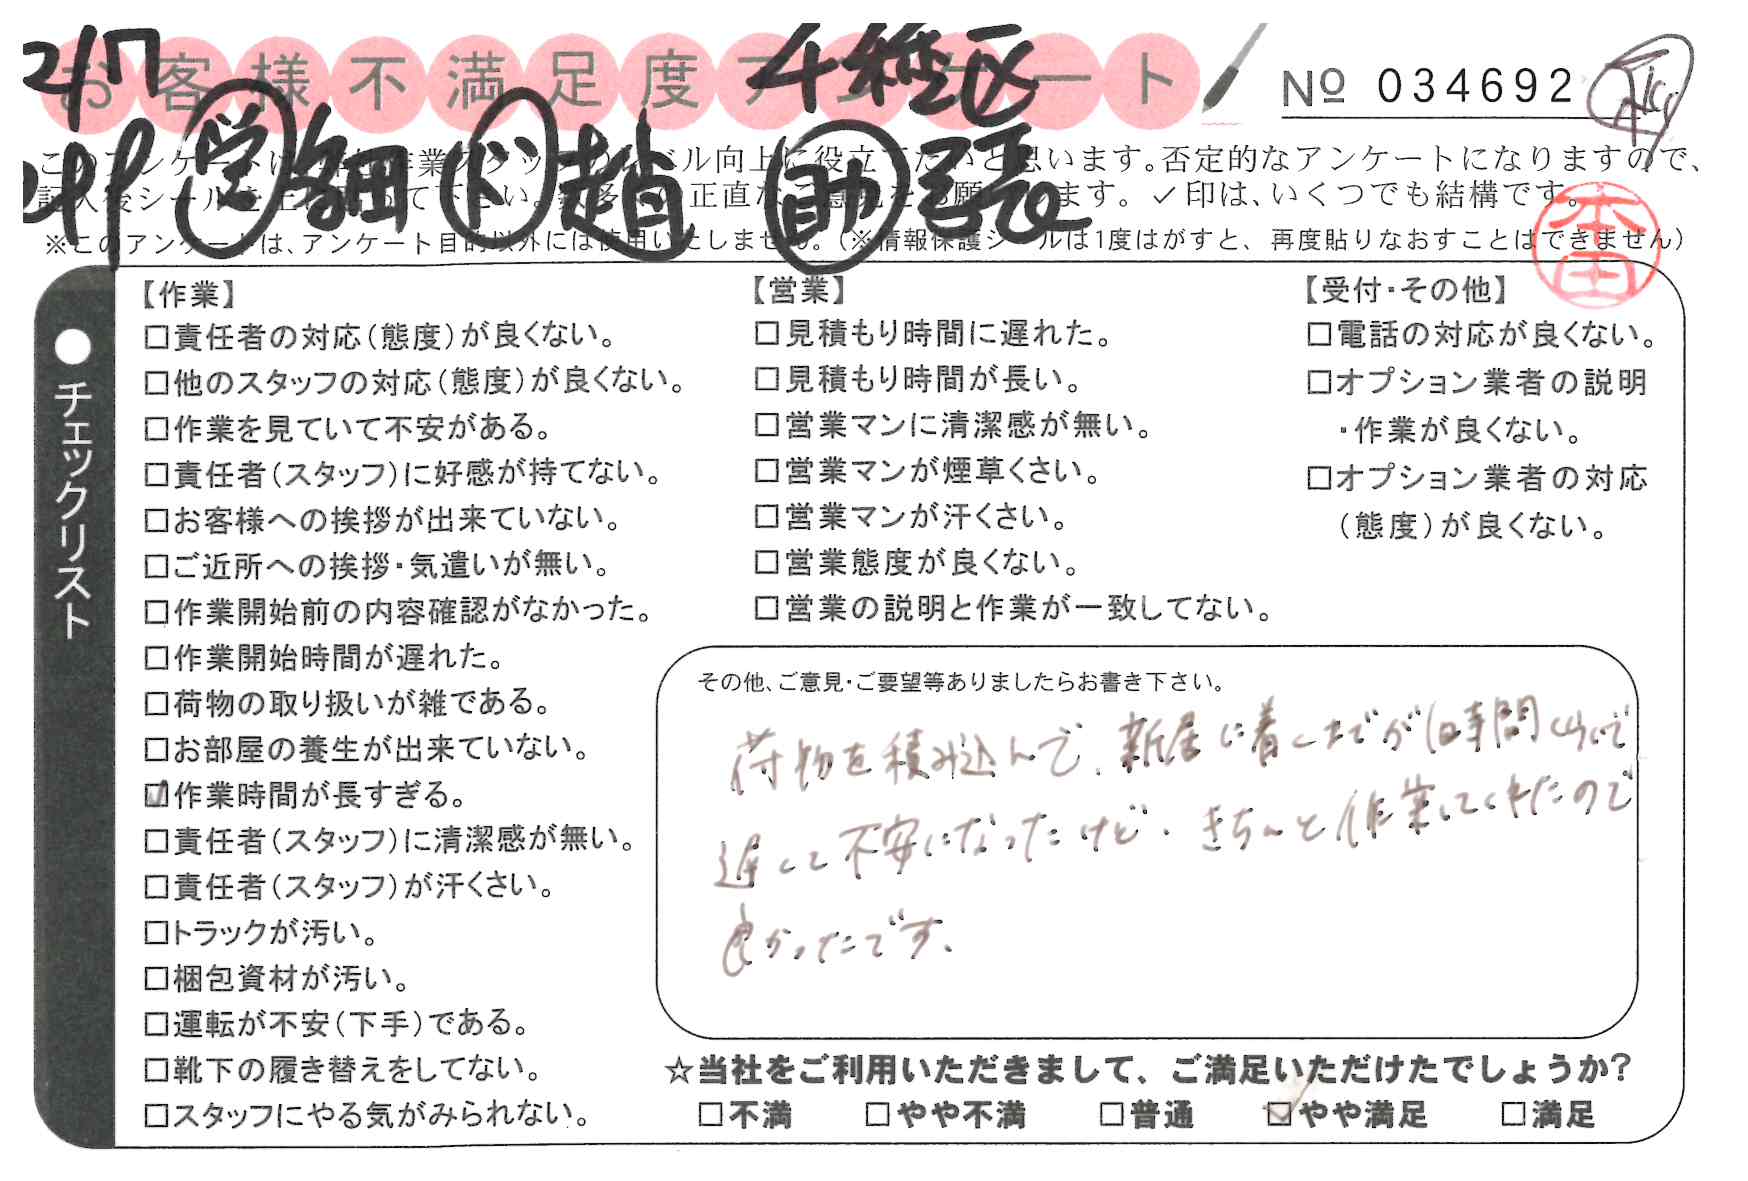 2/17
お客様不満足度アンケート
千種区
№ 034692
営 細 ド 趙 助 張
このアンケートは、
作業スタッフのレベル向上に役立てたいと思います。否定的なアンケートになりますので、
記入後シールを上に
って下さい。数多くの正直なご意見をお願いします。✓印は、いくつでも結構です。
※このアンケートは、アンケート目的以外には使用いたしません。(※情報保護シールは1度はがすと、再度貼りなおすことはできません)
本田
●チェックリスト
【作業】
□責任者の対応(態度)が良くない。
□他のスタッフの対応(態度)が良くない。
□作業を見ていて不安がある。
□責任者(スタッフ)に好感が持てない。
□お客様への挨拶が出来ていない。
□ご近所への挨拶・気遣いが無い。
□作業開始前の内容確認がなかった。
□作業開始時間が遅れた。
□荷物の取り扱いが雑である。
□お部屋の養生が出来ていない。
☑作業時間が長すぎる。
□責任者(スタッフ)に清潔感が無い。
□責任者(スタッフ)が汗くさい。
□トラックが汚い。
□梱包資材が汚い。
□運転が不安(下手)である。
□靴下の履き替えをしてない。
□スタッフにやる気がみられない。
【営業】
□見積もり時間に遅れた。
□見積もり時間が長い。
□営業マンに清潔感が無い。
□営業マンが煙草くさい。
□営業マンが汗くさい。
□営業態度が良くない。
□営業の説明と作業が一致してない。
【受付・その他】
□電話の対応が良くない。
□オプション業者の説明
・作業が良くない。
□オプション業者の対応
(態度)が良くない。
その他、ご意見・ご要望等ありましたらお書き下さい。
荷物を積み込んで、新居に着くまでが1時間くらいで
遅くて不安になったけど、きちんと作業してくれたので
良かったです。
☆当社をご利用いただきまして、ご満足いただけたでしょうか?
□不満 □やや不満 □普通 ☑やや満足 □満足